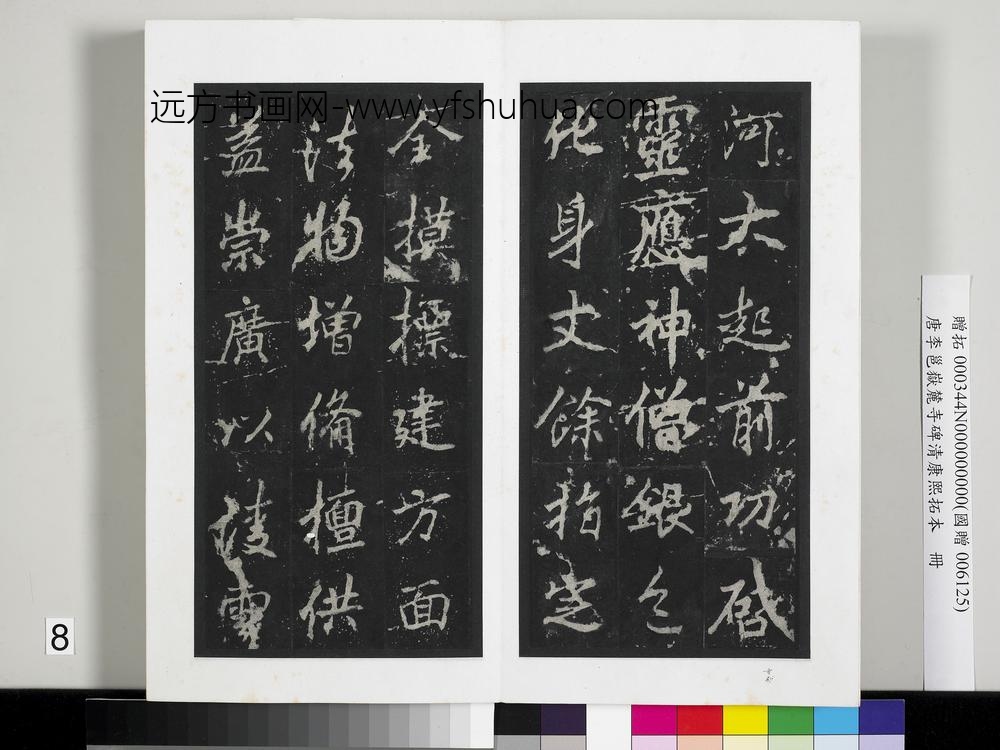 河大起前功啓
靈應神僧銀色
化身丈餘指定
全摸摽建方面
法物增備檀供
益崇廣以凌雲
远方书画网-www.yfshuhua.com
贈拓 000344N000000000(國贈 006125)
唐李邕嶽麓寺碑清康熙拓本 冊
8